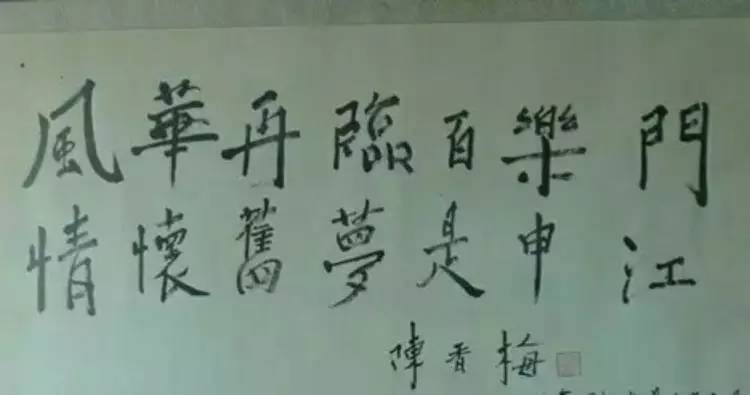 風華再臨百樂門
情懷舊夢是申江
陳香梅